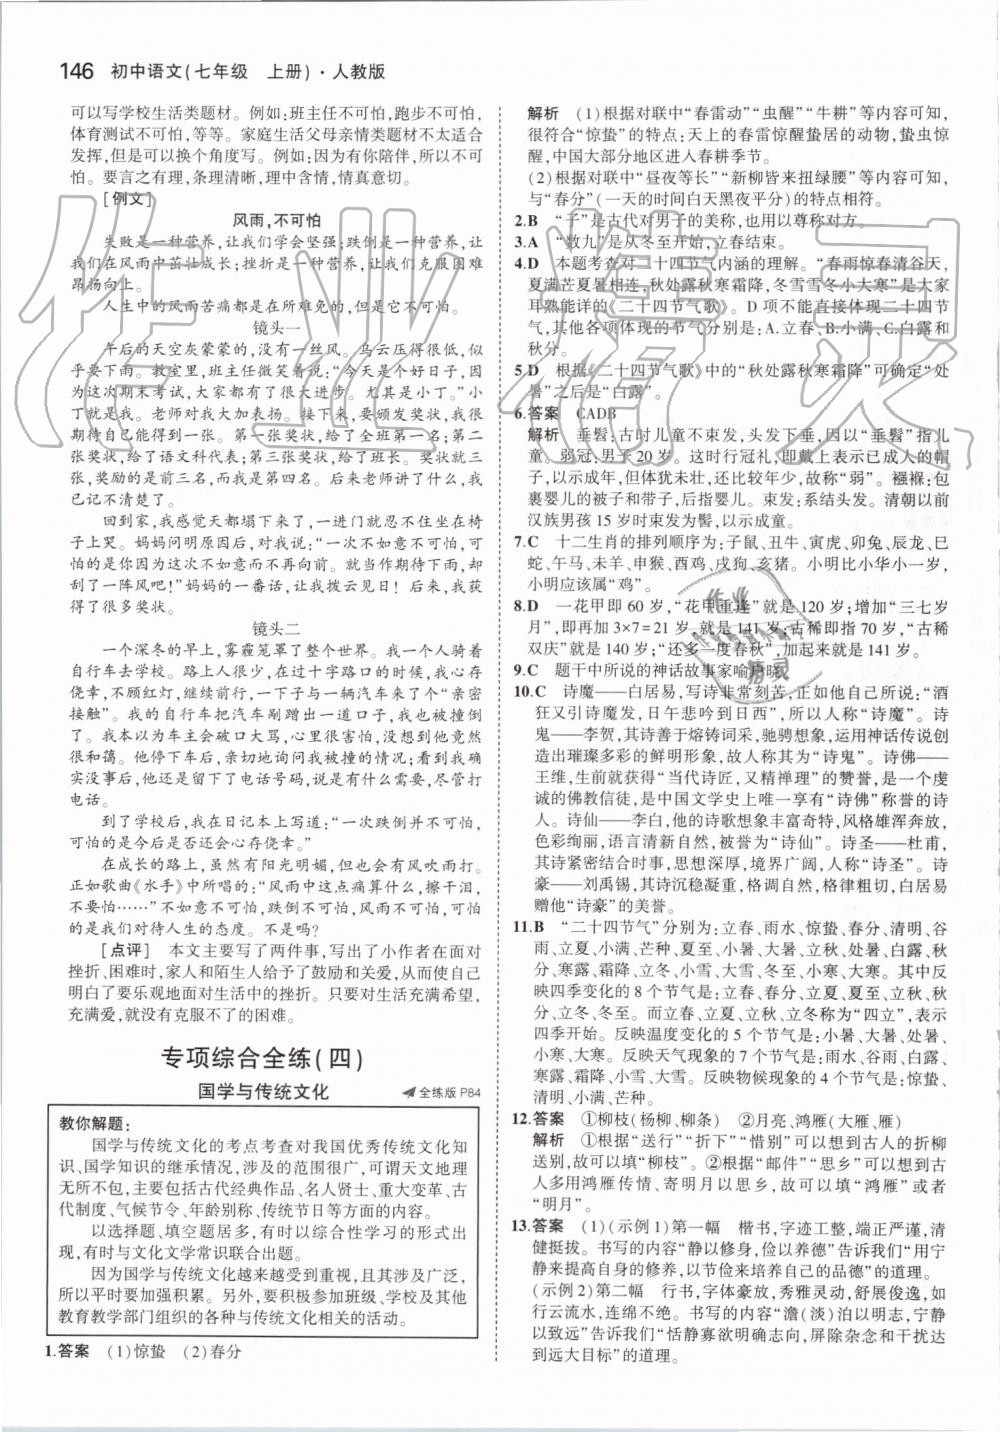 146 初中语文(七年级 上册)·人教版
可以写学校生活类题材。例如:班主任不可怕,跑步不可怕,
体育测试不可怕,等等。家庭生活父母亲情类题材不太适合
发挥,但是可以换个角度写。例如:因为有你陪伴,所以不可
怕。要言之有理,条理清晰,理中含情,情真意切。
[例文]
风雨,不可怕
失败是一种营养,让我们学会坚强;跌倒是一种营养,让
我们在风雨中茁壮成长;挫折是一种营养,让我们克服困难
昂扬向上。
人生中的风雨苦痛都是在所难免的,但是它不可怕。
镜头一
午后的天空灰蒙蒙的,没有一丝风。乌云压得很低,似
乎要下雨。教室里,班主任微笑着说:“今天是个好日子,
因为这次期末考试,大家都有了很大进步。尤其是小丁。”小
丁就是我。老师对我大加表扬。接下来,要颁发奖状,我很
期待自己能得到一张。第一张奖状,给了全班第一名;第二
张奖状,给了语文科代表;第三张奖状,给了……奖状就三
张,奖励的是前三名,而我是第四名。后来老师讲了什么,我
已记不清楚了。
回到家,我感觉天都塌下来了,一进门就忍不住坐在椅
子上哭。妈妈问明原因后,对我说:“一次不如意不可怕,可
怕的是你因为这次不如意而不再向前。就像今天的雨,却
刮了一阵风吧!”妈妈的一番话,让我拨云见日!后来,我获
得了很多奖状。
镜头二
一个深冬的早上,雾霾笼罩了整个世界。我一个人骑着
自行车去学校。路上人很少,在过十字路口的时候,我心存
侥幸,不顾红灯,继续前行,一下子与一辆汽车来了个“亲密
接触”。我的自行车把汽车剐蹭出一道口子,我也被撞倒
了。我本以为车主会破口大骂,但是没想到他竟然
很和蔼。他停下车后,亲切地询问我被撞的情况;在确
实没事后,他还留下了电话号码,说是有什么需要,尽管打
电话。
到了学校后,我在日记本上写道:“一次跌倒并不可怕,
可怕的是今后是否还会心存侥幸。”
在成长的路上,虽然有阳光明媚,但也会有风吹雨打。
正如歌曲《水手》中所唱的:“风雨中这点痛算什么,擦干泪,
不要怕……”不如意不可怕,跌倒不可怕,风雨不可怕,可怕
的是我们对待人生的态度。不是吗?
[点评] 本文主要写了两件事,写出了小作者在面对
挫折、困难时,家人和陌生人给予了鼓励和关爱,从而使自己
明白了要乐观地面对生活中的挫折。只要对生活充满希望,
充满爱,就没有克服不了的困难。
专项综合全练(四)
国学与传统文化
全练版 P84
教你解题:
国学与传统文化的考点考查对我国优秀传统文化知
识、国学知识的继承情况,涉及的范围很广,可谓天文地理
无所不包,主要包括古代经典作品、名人贤士、重大变革、古
代制度、气候节令、年龄别称、传统节日等方面的内容。
以选择题、填空题居多,有时以综合性学习的形式出
现,有时与文化文学常识联合出题。
因为国学与传统文化越来越受到重视,且其涉及广泛,
所以平时要加强积累。另外,要积极参加班级、学校及其他
教育教学部门组织的各种与传统文化相关的活动。
1.答案 (1)惊蛰 (2)春分
解析 (1)根据对联中“春雷动”“虫醒”“牛耕”等内容可知,
很符合“惊蛰”的特点:天上的春雷惊醒蛰居的动物,蛰虫惊
醒,中国大部分地区进入春耕季节。
(2)根据对联中“昼夜等长”“新柳皆来扭绿腰”等内容可知,
与“春分”(一天的时间白天黑夜平分)的特点相符。
2.B “子”是古代对男子的美称,也用以尊称对方。
3.A “数九”是从冬至开始,立春结束。
4.D 本题考查对二十四节气内涵的理解。“春雨惊春清谷天,
夏满芒夏暑相连,秋处露秋寒霜降,冬雪雪冬小大寒”是大家
耳熟能详的《二十四节气歌》。D 项不能直接体现二十四节
气,其他各项体现的节气分别是:A.立春、B.小满、C.白露和
秋分。
5.D 根据《二十四节气歌》中的“秋处露秋寒霜降”可确定“处
暑”之后是“白露”。
6.答案 CADB
解析 垂髫:古时儿童不束发,头发下垂,因以“垂髫”指儿
童。弱冠:男子 20 岁。这时行冠礼,即戴上表示已成人的帽
子,以示成年,但体犹未壮,还比较年少,故称“弱”。襁褓:包
裹婴儿的被子和带子,后指婴儿。束发:系结头发。清朝以前
汉族男孩 15 岁时束发为髻,以示成童。
7.C 十二生肖的排列顺序为:子鼠、丑牛、寅虎、卯兔、辰龙、巳
蛇、午马、未羊、申猴、酉鸡、戌狗、亥猪。小明比小华小一岁,
小明应该属“鸡”。
8.D 一花甲即 60 岁,“花甲重逢”就是 120 岁;增加“三七岁
月”,即再加 3×7=21 岁,就是 141 岁;古稀即 70 岁,“古稀
双庆”就是 140 岁;“还多一度春秋”,加起来就是 141 岁。
9.C 题干中所说的神话故事家喻户晓。
10.C 诗魔——白居易,写诗非常刻苦,正如他自己所说:“酒
狂又引诗魔发,日午悲吟到日西”,所以人称“诗魔”。诗
鬼——李贺,其诗善于熔铸词采,驰骋想象,运用神话传说创
造出璀璨多彩的鲜明形象,故人称其为“诗鬼”。诗佛——
王维,生前就获得“当代诗匠,又精禅理”的赞誉,是一个虔
诚的佛教信徒,是中国文学史上唯一享有“诗佛”称誉的诗
人。诗仙——李白,他的诗歌想象丰富奇特,风格雄浑奔放,
色彩绚丽,语言清新自然,被誉为“诗仙”。诗圣——杜甫,
其诗紧密结合时事,思想深厚,境界广阔,人称“诗圣”。诗
豪——刘禹锡,其诗沉稳凝重,格调自然,格律粗切,白居易
赠他“诗豪”的美誉。
11.B “二十四节气”分别为:立春、雨水、惊蛰、春分、清明、谷
雨、立夏、小满、芒种、夏至、小暑、大暑、立秋、处暑、白露、秋
分、寒露、霜降、立冬、小雪、大雪、冬至、小寒、大寒。其中反
映四季变化的 8 个节气是:立春、春分、立夏、夏至、立秋、秋
分、立冬、冬至。而立春、立夏、立秋、立冬为“四立”,表示
四季开始。反映温度变化的 5 个节气是:小暑、大暑、处暑、
小寒、大寒。反映天气现象的 7 个节气是:雨水、谷雨、白露、
寒露、霜降、小雪、大雪。反映物候现象的 4 个节气是:惊蛰、
清明、小满、芒种。
12.答案 ①柳枝(杨柳、柳条) ②月亮、鸿雁(大雁、雁)
解析 ①根据“送行”“折下”“惜别”可以想到古人的折柳
送别,故可以填“柳枝”。②根据“邮件”“思乡”可以想到古
人多用鸿雁传情、寄明月以思乡,故可以填“鸿雁”或者
“明月”。
13.答案 (1)(示例1)第一幅 楷书,字迹工整,端正严谨,清
健挺拔。书写的内容“静以修身,俭以养德”告诉我们,用宁
静来提高自身的修养,以节俭来培养自己的品德”的道理。
(示例 2)第二幅 行书,字体豪放,秀雅灵动,舒展俊逸,如
行云流水,连绵不绝。书写的内容“澹(淡)泊以明志,宁静
以致远”告诉我们“恬静寡欲明确志向,屏除杂念和干扰达
到远大目标”的道理。